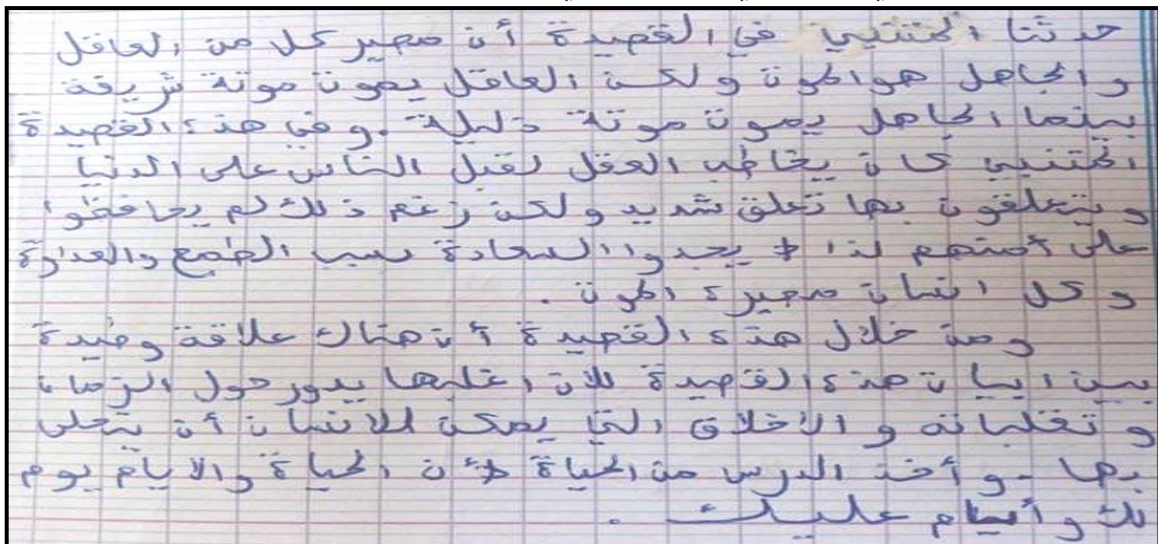 حدثنا المتنبي في القصيدة أن مصير كلا من العاقل
والجاهل هو الموت ولكن العاقل يموت موتة شريفة
بينما الجاهل يموت موتة ذليلة. وفي هذه القصيدة
المتنبي كان يخاطب العقل لقبل الناس على الدنيا
ويتعلقون بها تعلق شديد ولكن رغم ذلك لم يحافظوا
على أمنهم لذا لم يجدوا السعادة بسبب الطمع والعداوة
وكل انسان مصيره الموت.
ومن خلال هذه القصيدة أن هناك علاقة وطيدة
بين ابيات هذه القصيدة للأن اغلبها يدور حول الزمان
وتقلباته والاخلاق التي يمكن للانسان أن يتحلى
بها - و أخذ الدرس من الحياة لأن الحياة والايام يوم
لك وأيام عليك.